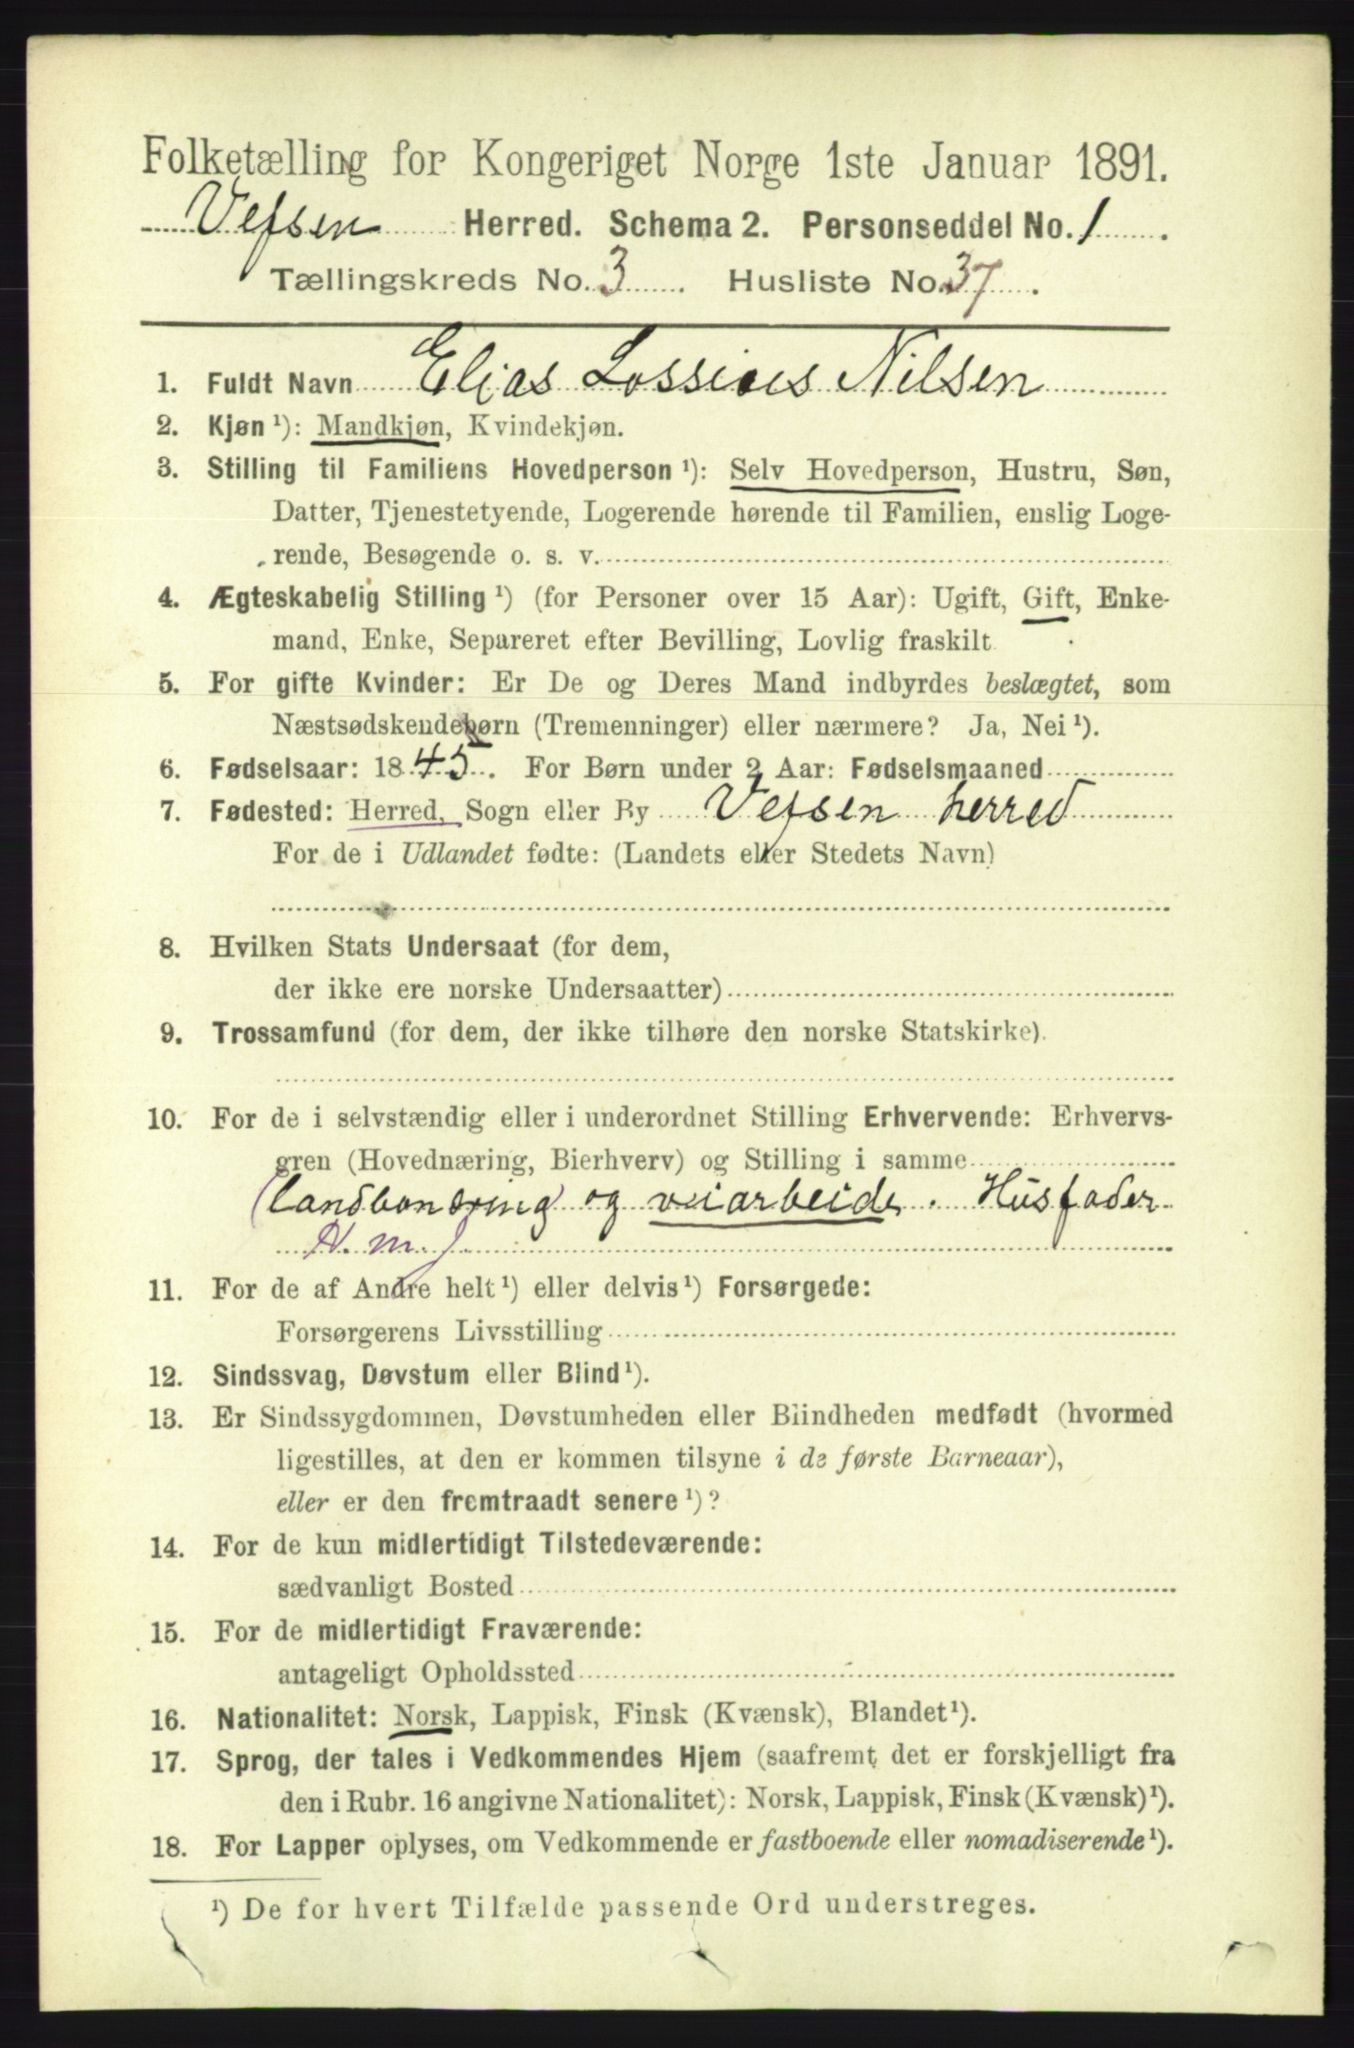 Folketælling for Kongeriget Norge 1ste Januar 1891.
Vefsen Herred. Schema 2. Personseddel No. 1.
Tællingskreds No. 3. Husliste No. 37.
1. Fuldt Navn Elias Lossius Nilsen
2. Kjøn ¹): Mandkjøn, Kvindekjøn.
3. Stilling til Familiens Hovedperson ¹): Selv Hovedperson, Hustru, Søn,
Datter, Tjenestetyende, Logerende hørende til Familien, enslig Loge-
rende, Besøgende o. s. v.
4. Ægteskabelig Stilling ¹) (for Personer over 15 Aar): Ugift, Gift, Enke-
mand, Enke, Separeret efter Bevilling, Lovlig fraskilt
5. For gifte Kvinder: Er De og Deres Mand indbyrdes beslægtet, som
Næstsødskendebørn (Tremenninger) eller nærmere? Ja, Nei ¹).
6. Fødselsaar: 1845. For Børn under 2 Aar: Fødselsmaaned
7. Fødested: Herred, Sogn eller By Vefsen herred
For de i Udlandet fødte: (Landets eller Stedets Navn)
8. Hvilken Stats Undersaat (for dem,
der ikke ere norske Undersaatter)
9. Trossamfund (for dem, der ikke tilhøre den norske Statskirke).
10. For de i selvstændig eller i underordnet Stilling Erhvervende: Erhvervs-
gren (Hovednæring, Bierhverv) og Stilling i samme
og veiarbeide. Husfader
H. m. J
11. For de af Andre helt ¹) eller delvis ¹) Forsørgede:
Forsørgerens Livsstilling
12. Sindssvag, Døvstum eller Blind ¹).
13. Er Sindssygdommen, Døvstumheden eller Blindheden medfødt (hvormed
ligestilles, at den er kommen tilsyne i de første Barneaar),
eller er den fremtraadt senere ¹)?
14. For de kun midlertidigt Tilstedeværende:
sædvanligt Bosted
15. For de midlertidigt Fraværende:
antageligt Opholdssted
16. Nationalitet: Norsk, Lappisk, Finsk (Kvænsk), Blandet ¹).
17. Sprog, der tales i Vedkommendes Hjem (saafremt det er forskjelligt fra
den i Rubr. 16 angivne Nationalitet): Norsk, Lappisk, Finsk (Kvænsk) ¹).
18. For Lapper oplyses, om Vedkommende er fastboende eller nomadiserende ¹).
¹) De for hvert Tilfælde passende Ord understreges.